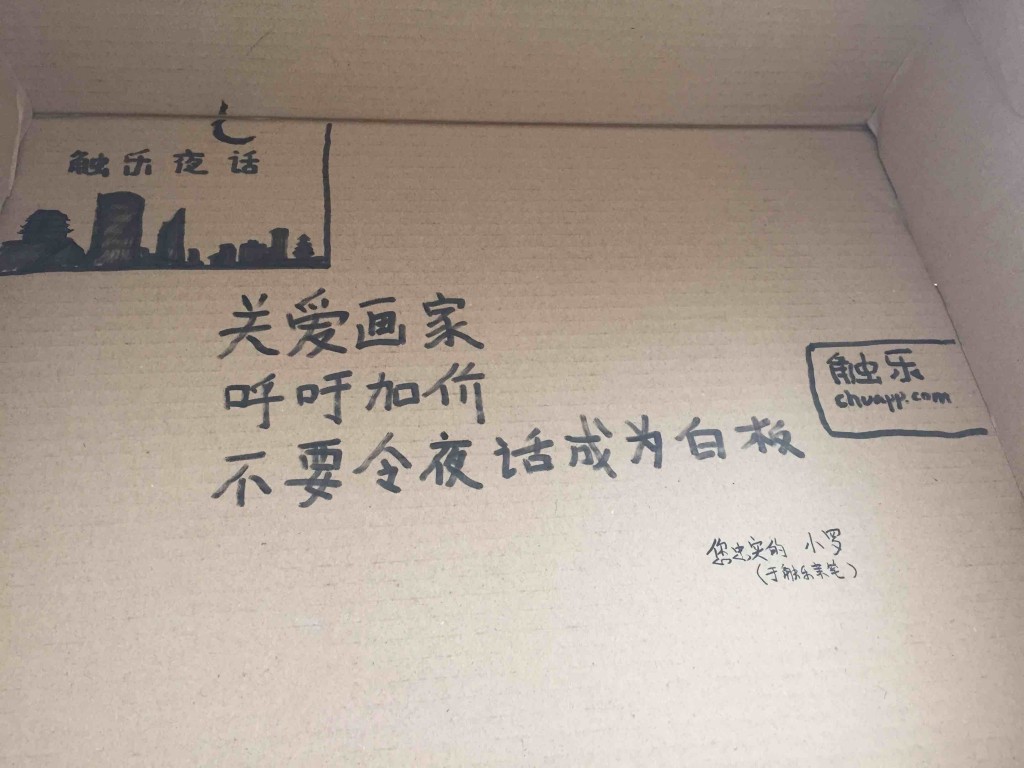 触乐夜话
关爱画家
呼吁加价
不要令夜话成为白板
触乐
chuapp.com
您忠实的 小罗
(于触乐亲笔)